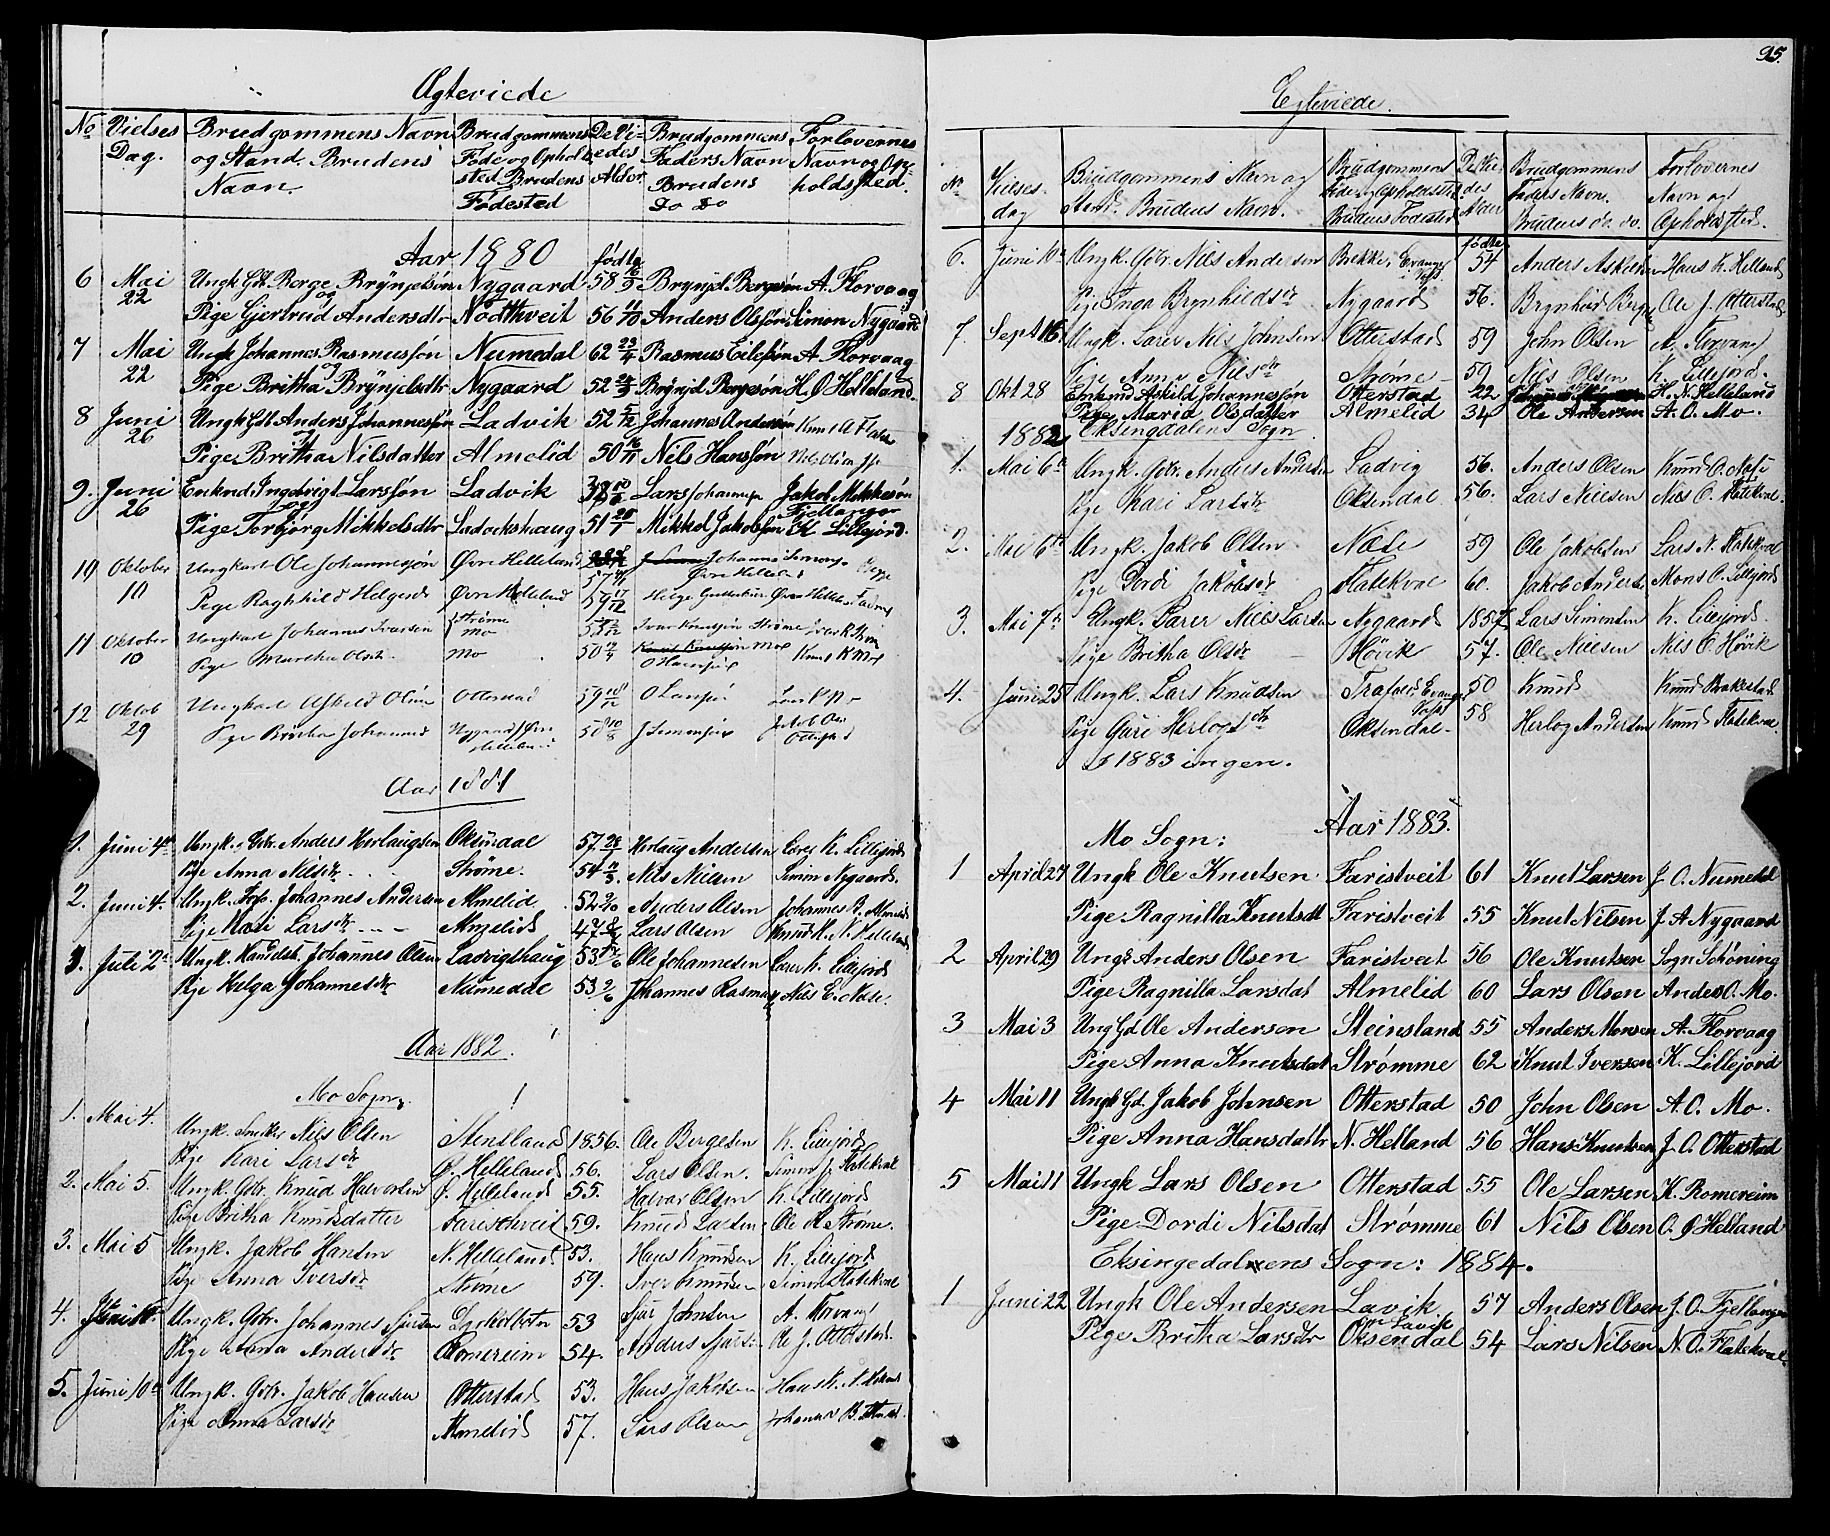 Ægteviede
No Vielses Dag. Brudgommens Navn og Stand. Brudens Navn Brudgommens Føde og Opholdssted Brudens Fødested De Viedes Alder Brudgommens Faders Navn Brudens Do Do Forlovernes Navn og Opholdssted.
Aar 1880 fødte
6 Mai 22 Ungk Gbr Børge Brynjelsøn Nygaard 58 16/3 Brynjel Børgesøn A. Florvaag
og Pige Gjertrud Andersdtr Nødthveit 56 11/10 Anders Olsøn Simon Nygaard
7 Mai 22 Ungk Johannes Rasmussøn Numedal 62 23/4 Rasmus Eilefsøn A. Florvaag
og Pige Britha Brynjelsdtr Nygaard 52 Brynjel Børgesøn H. O Helleland.
8 Juni 26 Ungk Gbr Anders Johannessøn Ladvik 52 Johannes Andersøn Knut A
og Pige Britha Nilsdatter Almelid 50 16/11 Nils Hanssøn
9. Juni 26 Enkmd Ingebrigt Larssøn Ladvik Lars Johanness Jakob Mikkelsøn Fjellanger
og Pige Torbjørg Mikkelsdtr Ladvikshaug 51 Mikkel Jakobsøn K. Lillejord.
10 Oktober 10 Ungkarl Ole Johannessøn Øvre Helleland 57 Johannes Simons Øvre Hellel
Pige Raghild Helgesd Øvre Helleland 59 17/12 Helge Øvre Hellel
11 Oktober 10 Ungkarl Johannes Ivarsen Strøme Mo Ivar Knutsøn Strøme Iver K
Pige Martha Olsdr Mo 50 O Hanssøn Knut K Mo
12 Oktob 29 Ungkarl Askild Olsøn Otterstad 59 O Larssøn
Pige Britha Johannesd Nygaard Øvre Helleland 58 10/8 J Simonsøn Jakob Ols Otterstad
Aar 1881
1. Juni 4de Ungk. Gbr. Anders Herlaugsen Oksendal 57 Herlaug Andersen Carer K. Lillejord
Pige Anna Nilsdr Strøme. 54 Nils Nilsen Simon Nygaard.
2. Juni 4. Ungk. Johannes Andersen Almelid 52 Anders Olsen Johannes B. Almelid
Pige Kari Larsdr Almelid 47 Lars Olsen Knud K. N. Helleland
3. Juli 2 Ungk. Johannes Olsen Ladvigshaug 53 Ole Johannesen Carer K. Lillejord
Pige Helga Johannesdr Numedal 53 2/6 Johannes Rasmus Nils E. Mo
Aar 1882.
Mo Sogn.
1. Mai 4. Ungk. Snekker Nils Olsen Stensland 1856. Ole Børgesen K. Lillejord
Pige Kari Larsdr Ø. Helleland 56. Lars Olsen. Simon J. Flatekval
2. Mai 5. Ungk. Gbr. Knud Halvorsen Ø. Helleland 55. Halvor Olsen K. Lillejord
Pige Britha Knudsdatter Faristhveit 59. Knud Larsen Ole H Strøme.
3. Mai 5 Ungk. Jakob Hansen N. Helleland 53. Hans Knudsen K. Lillejord
Pige Anna Iversdr Strøme 59. Iver Knudsen Simon Flatekval
4. Ungk. Gbr. Johannes Sjursen 53 Sjur Johnsen A. Florvaag
Pige Anna Andersdr Romereim 54. Anders Sjursen Ole J. Otterstad.
5. Juni 10de Ungk. Gbr. Jakob Hansen Otterstad 53. Hans Jakobsen Hans K. N. Helland
Pige Anna Larsdr Almelid 57. Lars Olsen Johannes B. Almelid.
95.
Egteviede.
No Vielses dag Brudgommens Navn og Stand. Brudens Navn. Brudgommens Føde og Opholdssted Brudens Fødested De Viedes Alder Brudgommens Faders Navn. Brudens do. do. Forlovernes Navn og Opholdssted.
fødte
6. Juni 10de Ungk. Gbr. Nils Andersen Brekke, Evanger 54 Anders Askildsen Hans K. Helland
Pige Inga Brynhildsdr Nygaard 56. Brynhild Berge Ole J. Otterstad
7. Sept 16. Ungk. Carer Nils Johnsen Otterstad 59 John Olsen A. Florvaag
Pige Anna Nilsdr Strøme 59 Nils Olsen K. Lillejord.
8 Okt 28 Enkmd Askild Johannessøn Otterstad 22 H. N. Helleland
Pige Maria Olsdatter Almelid 34 Ole Andersen A. O. Mo.
1882, Eksingdalens Sogn
1. Mai 6te Ungk. Gbr. Anders Andersen Ladvig 56. Anders Olsen Knud O. Nese
Pige Kari Larsdr Oksendal 56. Lars Nilsen Nils O. Flatekval.
2. Mai 6te Ungk. Jakob Olsen Nese 59 Ole Jakobsen Lars N. Flatekval
Pige Dordi Jakobsdr Flatekval 60. Jakob Anders Mons O. Lillejord
3. Mai 7de Ungk. Carer Nils Larsen Nygaard 1857 Lars Simonsen K. Lillejord.
Pige Britha Olsdr Høvik 57. Ole Nilsen Nils O. Høvik
4. Juni 25 Ungk. Lars Knudsen Trafald, Evanger 50 Knud Knud Brakestad
Pige Guri Herlogsdr Oksendal 58 Herlog Andersen Knud Flatekval.
I 1883 ingen.
Mo Sogn: Aar 1883.
1 April 27 Ungk Ole Knutsen Faristveit 61 Knut Larsen J. O. Numedal
Pige Ragnilla Knutsdt Faristveit 55 Knut Nilsen J. A Nygaard
2 April 29 Ungk Anders Olsen Faristveit 56 Ole Knutsen Sogn Schøning
Pige Ragnilla Larsdat Almelid 60 Lars Olsen Anders O. Mo.
3 Mai 3 Ung Gd Ole Andersen Steinsland 55 Anders Monsen A. Florvaag
Pige Anna Knutsdat Strømme 62 Knut Iversen K. Lillejord
4 Mai 11 Ungk Gd. Jakob Johnsen Otterstad 50 John Olsen A. O. Mo.
Pige Anna Hansdattr N. Helland 56 Hans Knutsen J. O. Otterstad
5 Mai 11 Ungk Lars Olsen Otterstad 55 Ole Larsen K. Romereim
Pige Dordi Nilsdat Strømme 61 Nils Olsen O. J Helland
Eksingedalens Sogn: 1884.
1 Juni 22 Ungk Ole Andersen Lavik 57 Anders Olsen J. O. Fjellanger
Pige Britha Larsdr Oksendal Lavik 54 Lars Nilsen N. O. Flatekval